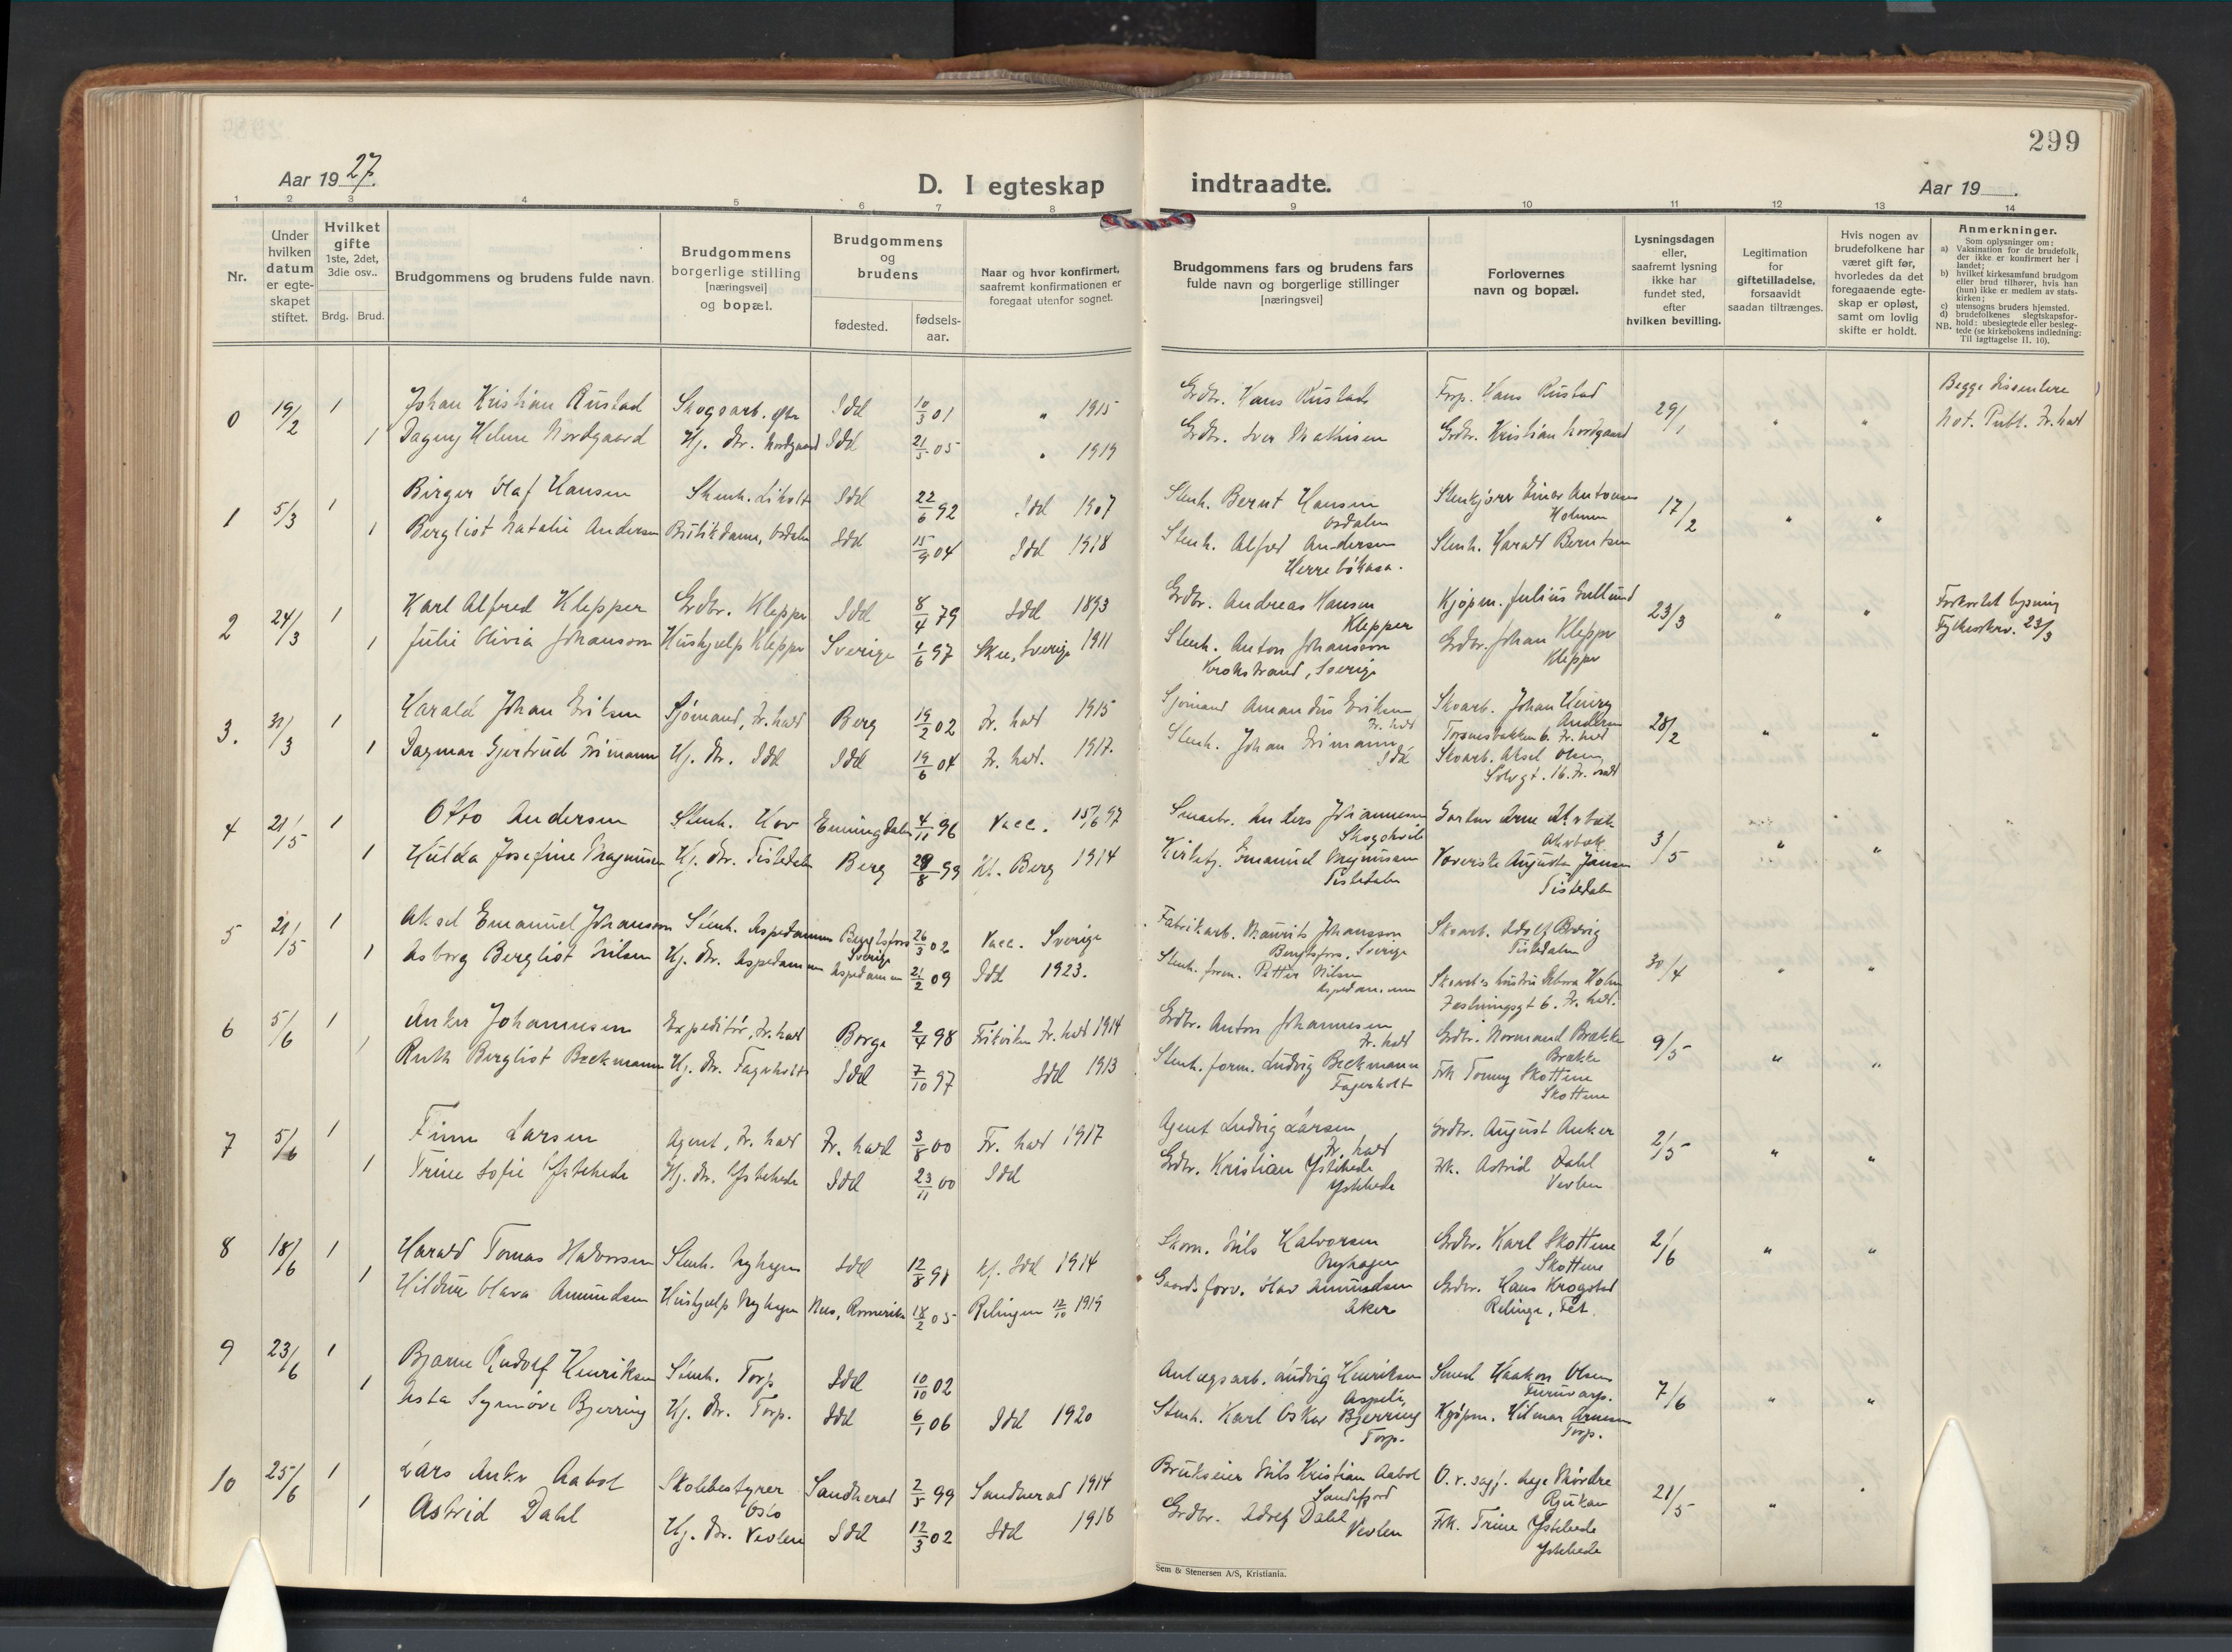 299
Aar 1927.
D. I egteskap
indtraadte.
Aar 19 .
1 2 3 4 5 6 7 8 9 10 11 12 13 14
Nr.
Under hvilken datum er egte-skapet stiftet.
Hvilket gifte 1ste, 2det, 3die osv..
Brdg. Brud.
Brudgommens og brudens fulde navn.
Brudgommens borgerlige stilling [næringsvei] og bopæl.
Brudgommens og brudens
fødested.
fødsels-aar.
Naar og hvor konfirmert, saafremt konfirmationen er foregaat utenfor sognet.
Brudgommens fars og brudens fars fulde navn og borgerlige stillinger [næringsvei]
Forlovernes navn og bopæl.
Lysningsdagen eller, saafremt lysning ikke har fundet sted, efter hvilken bevilling.
Legitimation for giftetilladelse, forsaavidt saadan tiltrænges.
Hvis nogen av brudefolkene har været gift før, hvorledes da det foregaaende egte-skap er opløst, samt om lovlig skifte er holdt.
Anmerkninger.
Som oplysninger om:
a) Vaksination for de brudefolk, der ikke er konfirmert her i landet;
b) hvilket kirkesamfund brudgom eller brud tilhører, hvis han (hun) ikke er medlem av stats-kirken;
c) utensogns bruders hjemsted.
d) brudefolkenes slegtskapsfor-hold: ubeslegtede eller besleg-tede (se kirkebokens indledning: Til iagttagelse II. 10).
NB.
0 19/2 1 Johan Kristian Rustad Skogsarb. Idd 10/3 01 " 1915 Grdbr. Hans Rustad Forp. Hans Rustad 29/1 " " Begge dissentere
1 Dagny Helene Nordgaard Hj. dtr. Nordgaard Idd 21/5 05 " 1919 Grdbr. Iver Mathisen Grdbr. Kristian Nordgaard Not. Publ. Fr.hald
1 5/3 1 Birger Olaf Hansen Stenh. Liholt Idd 22/6 92 Idd 1907 Stenh. Bernt Hansen Osdalen Stenkjører Einar Antonsen Holmen 17/2 " "
1 Bergliot Natalie Andersen Butikdame, Osdalen Idd 15/9 04 Idd 1918 Stenh. Alfred Andersen Herrebøkasa. Stenh. Harald Berntsen
2 24/3 1 Karl Alfred Klepper Grdbr. Klepper Idd 8/4 79 Idd 1893 Grdbr. Andreas Hansen Klepper Kjøpm. Julius Gullund 23/3 " " Forkortet lysning
1 Julie Olivia Johansson Hushjælp Klepper Sverige 1/6 97 Skee, Sverige 1911 Stenh. Anton Johansson Krokstrand, Sverige Grdbr. Johan Klepper Klepper Fylkesskriv. 23/3
3. 31/3 1 Harald Johan Eriksen Sjømand, Fr.hald Berg 19/2 02 Fr. hald 1915 Sjømand Amandus Eriksen Fr. hald Skoarb. Johan Henry Andersen Torsnesbakken 6. Fr. hald 28/2 " "
1 Dagmar Gjertrud Grimann Hj. dtr. Idd Idd 19/6 04 Fr. hald. 1917. Stenh. Johan Grimann Idd Skoarb. Aksel Olsen Solvgt. 16. Fr. hald
4 21/5 1 Otto Andersen Stenh. Hov Enningdalen 4/11 96 Vacc. 15/6 97 Smaabr. Anders Johannesen Skogshvile Gartner Arne 3/5 " "
1 Hulda Josefine Magnusen Hj. dtr. Tistedalen Berg 29/8 99 Kl. Berg 1914 Kirketj. Emanuel Magnusen Tistedalen Væverske Augusta Jansen Tistedalen
5 21/5 1 Aksel Emanuel Johansson Stenh. Aspedammen Bengtsfors Sverige 26/3 02 Vacc. Sverige Fabrikarb. Maurits Johansson Bengtsfors, Sverige Skoarb. Adolf Brevig Tistedalen 30/4 " "
1 Asborg Bergliot Nilsen Hj. dtr. Aspedammen Aspedammen 21/2 09 Idd 1923. Stenh. form. Petter Nilsen Aspedammen Skoarb's hustru Debora Holm Fæstningsgt 6. Fr. hald.
6 5/6 1 Anker Johannesen Expeditør, Fr. hald Borge 2/4 98 Fr. hald 1914 Grdbr. Anton Johannesen Fr. hald Grdbr. Normand Brække Brække 9/5 " "
1 Ruth Bergliot Beckmann Hj. dtr. Fagerholt Idd 7/10 97 Idd 1913 Stenh. form. Ludvig Beckmann Fagerholt Frk Tommy Skottene Skottene
7 5/6 1 Finn Larsen Agent, Fr. hald Fr. hald 3/8 00 Fr. hald 1917 Agent Ludvig Larsen Fr. hald Grdbr. August Anker 2/5 " "
1 Trine Sofie Ystehede Hj. dtr. Ystehede Idd 23/11 00 Idd Grdbr. Kristian Ystehede Ystehede Frk. Astrid Dahl Vevlen
8 18/6 1 Harald Tomas Halvorsen Stenh. Nyhagen Idd 12/8 98 Idd 1914 Skom. Nils Halvorsen Nyhagen Grdbr. Karl Skottene Skottene 2/6 " "
1 Hildur Olava Amundsen Hushjælp Nyhagen Nes, Romerike 18/2 05 Relingen 12/10 1919 Gaardsforv. Olav Amundsen Aker Grdbr. Hans Krogstad Relinge, Fet.
9 23/6 1 Bjarne Rudolf Henriksen Stenh. Torp Idd 10/10 02 Anlægsarb. Ludvig Henriksen Aspeli, Smed Haakon Olsen Furuvarp. 7/6 " "
1 Asta Synnøve Bjerring Hj. dtr. Torp. Idd 6/1 06 Idd 1920 Stenh. Karl Oskar Bjerring Torp. Kjøpm. Hilmar Arnesen Torp.
10 25/6 1 Lars Anker Aabol Skolebestyrer Oslo Sandherad 2/5 99 Sandherad 1914 Brukseier Nils Kristian Aabol Sandefjord O.r.sagf. Aage Mørdre Rjukan 21/5 " "
1 Astrid Dahl Hj. dtr. Vevlen Idd 12/3 02 Idd 1916 Grdbr. Adolf Dahl Vevlen Frk. Trine Ystehede Ystehede
Sem & Stenersen A/S, Kristiania.